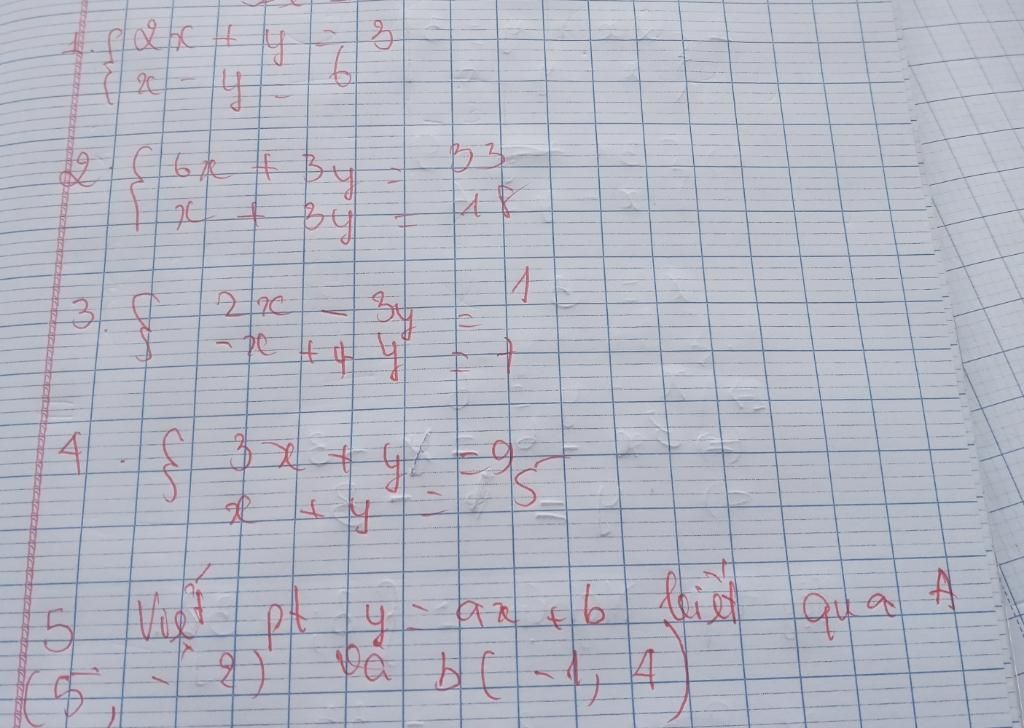 1. { 2x + y = 3
{ x - y = 6
2. { 6x + 3y = 33
x + 3y = 18
3. { 2x - 3y = 1
-x + 4y = 7
4. { 3x + y = 9
x + y = 5
5 Viết pt y = ax + b biết qua A
(5, -2) và b(-1, 4)